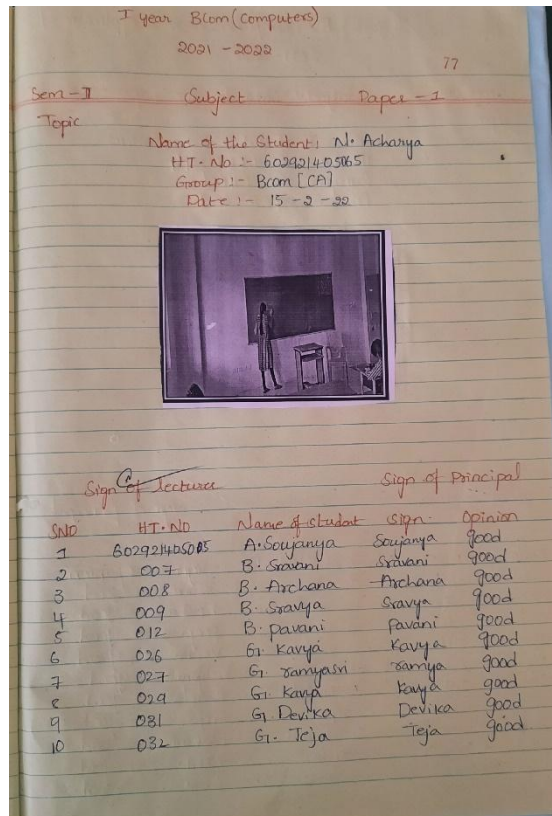 I year Bcom (computers)
2021 - 2022
77
Sem - II Subject Paper - 1
Topic
Name of the Student: N. Acharya
HT. No :- 602921405065
Group :- Bcom [CA]
Date :- 15 - 2 - 22
Sign of lecturer Sign of Principal
SNO HT. NO Name of student Sign. Opinion
1 602921405005 A. Soujanya Soujanya good
2 007 B. Sravani Sravani good
3 008 B. Archana Archana good
4 009 B. Sravya Sravya good
5 012 B. pavani pavani good
6 026 G. Kavya Kavya good
7 027 G. ramyasri ramya good
8 029 G. Kavya Kavya good
9 031 G. Devika Devika good
10 032 G. Teja Teja good